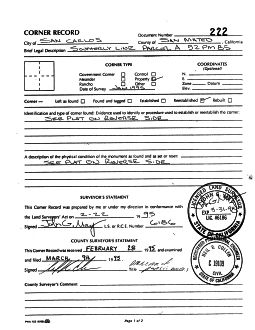 CORNER RECORD
Document Number 222
City of SAN CARLOS County of SAN MATEO, California
Brief Legal Description SOUTHERLY LINE PARCEL A 52 PM 85
CORNER TYPE
COORDINATES
(Optional)
Government Corner Control
Meander Property
Rancho Other
Date of Survey JAN 1995
N.
E.
Zone Datum
Elev.
Corner — Left as found Found and tagged Established Reestablished Rebuilt
Identification and type of corner found: Evidence used to identify or procedure used to establish or reestablish the corner:
SEE PLAT ON REVERSE SIDE
A description of the physical condition of the monument as found and as set or reset:
SEE PLAT ON REVERSE SIDE
SURVEYOR'S STATEMENT
This Corner Record was prepared by me or under my direction in conformance with
the Land Surveyors' Act on 2-22 1995
Signed John G. May L.S. or R.C.E. Number
LICENSED LAND SURVEYOR
STATE OF CALIFORNIA
COUNTY SURVEYOR'S STATEMENT
This Corner Record was received FEBRUARY 28 1995 and examined
and filed MARCH 1995
Signed Title
County Surveyor's Comment
Page 1 of 2